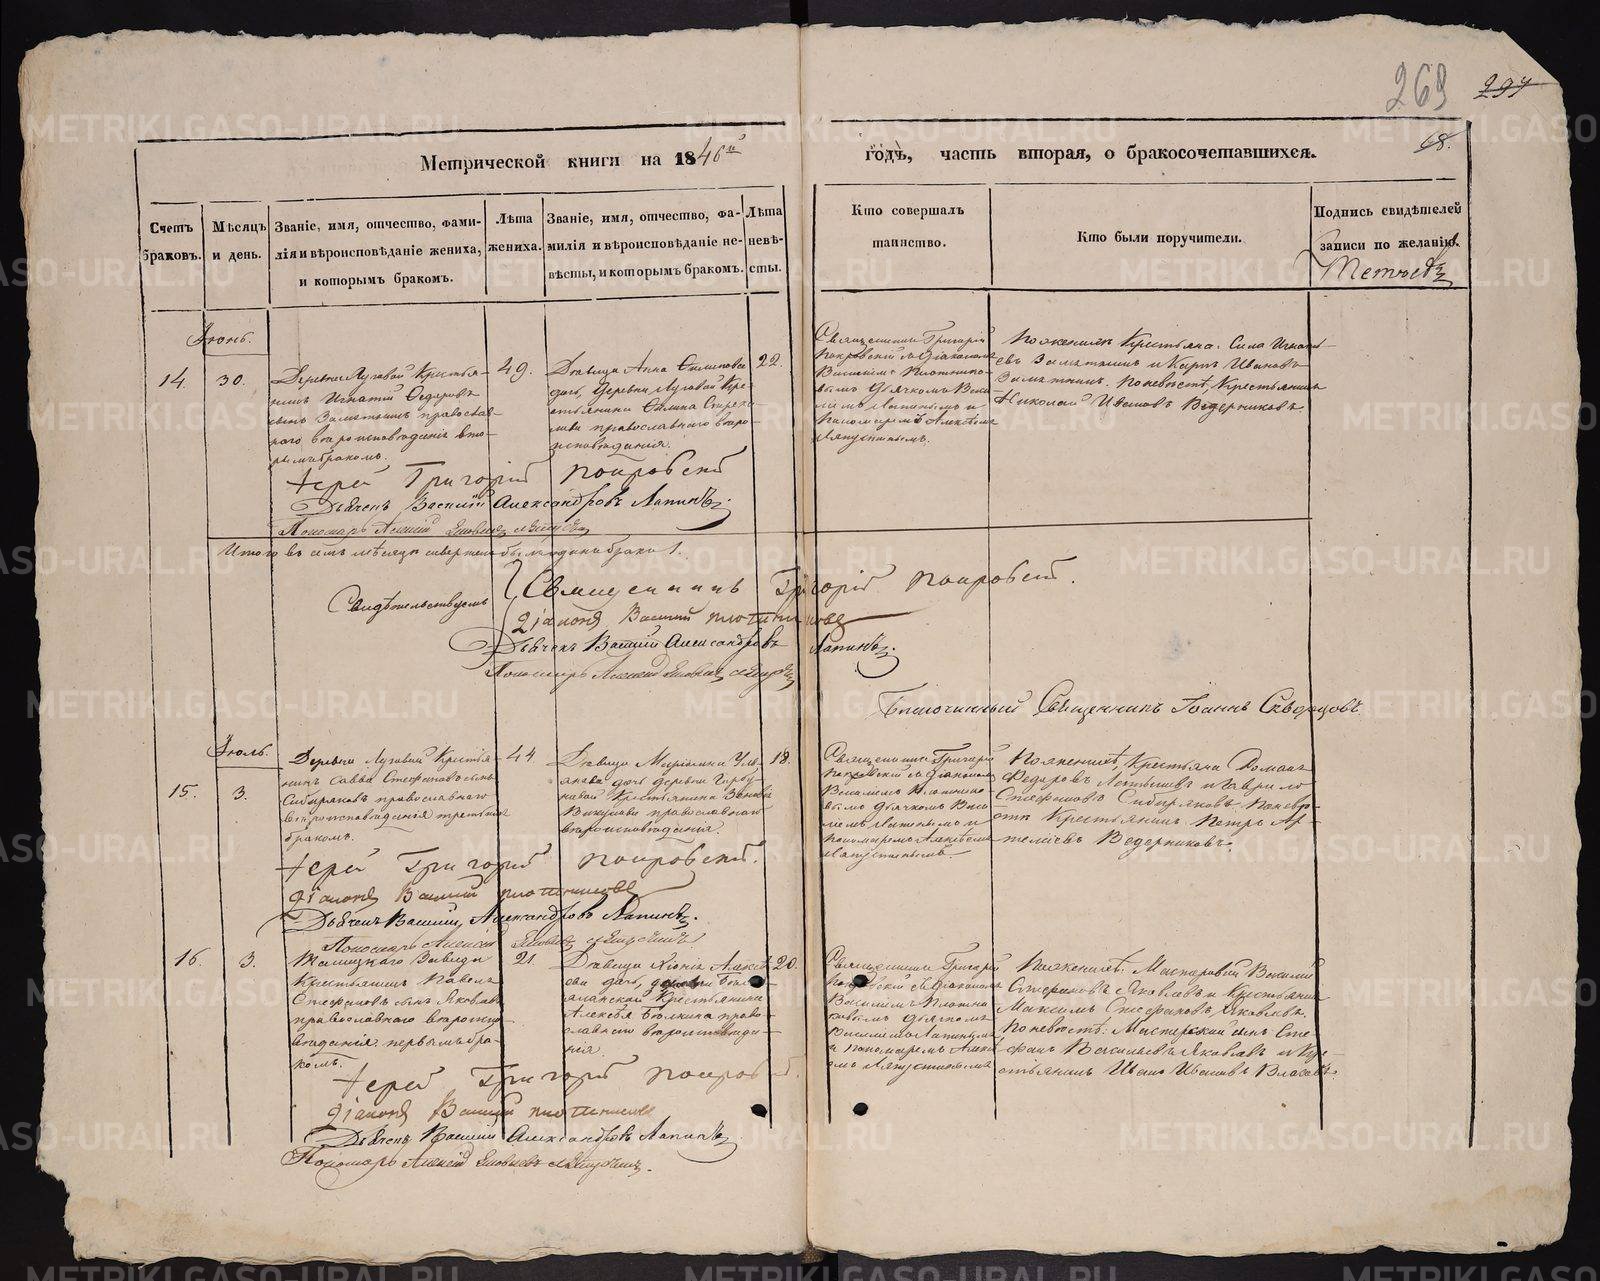 269
294
68.
Метрической книги на 1846й годъ, часть вторая, о бракосочетавшихся.
Счетъ браковъ.
Мѣсяцъ и день.
Званіе, имя, отчество, фами-
лія и вѣроисповѣданіе жениха,
и которымъ бракомъ.
Лѣта
жениха.
Званіе, имя, отчество, фа-
милія и вѣроисповѣданіе не-
вѣсты, и которымъ бракомъ.
Лѣта
невѣ-
сты.
Кто совершалъ
таинство.
Кто были поручители.
Подпись свидѣтелей
записи по желанію.
Іюнь.
14. 30.
Деревни Луговой Крестья-
нинъ Игнатій Ѳедоровъ
сынъ православ-
наго вѣроисповѣданія вто-
рымъ бракомъ.
49.
Дѣвица Анна Филипова
дочь, деревни Луговой Кре-
стьянина Филипа
православнаго вѣро-
исповѣданія.
22.
Священникъ Григорій
Покровскій съ Діакономъ
Василіемъ Плотнико-
вымъ Дьячкомъ Васи-
ліемъ Лапинымъ и
Пономаремъ Алексѣемъ
Крестьяна. Сила Игнать-
евъ и Карпъ Ивановъ
По невѣстѣ, Крестьянинъ
Николай Ивановъ Ведерниковъ.
Іерей Григорій Покровскій
Дьячекъ Василій Александровъ Лапинъ.
Пономарь Алексій
Итого въ семъ мѣсяцѣ браковъ 1.
Свидѣтельствуемъ
Священникъ Григорій Покровскій.
Діаконъ Василій Плотниковъ
Дьячекъ Василій Александровъ Лапинъ.
Пономарь Алексій
Благочинный Священникъ Іоаннъ Скворцовъ
Іюль.
15. 3.
Деревни Луговой Крестья-
нинъ Савва Стефановъ сынъ
Сибиряковъ православнаго
вѣроисповѣданія третьимъ
бракомъ.
44.
Дѣвица Улья-
нова дочь деревни Горбу-
новой Крестьянина
православнаго
вѣроисповѣданія.
18.
Священникъ Григорій
Покровскій съ Діакономъ
Василіемъ Плотнико-
вымъ Дьячкомъ Васи-
ліемъ Лапинымъ и
Пономаремъ Алексѣемъ
По женихѣ, Крестьяна Романъ
Федоровъ и Гаврило
Стефановъ Сибиряковъ. По невѣ-
стѣ Крестьянинъ Петръ Ар-
темьевъ Ведерниковъ.
Іерей Григорій Покровскій.
Діаконъ Василій Плотниковъ
Дьячекъ Василій Александровъ Лапинъ.
Пономарь Алексій
16. 3.
Талицкаго Завода
Крестьянинъ Павелъ
Стефановъ сынъ Яковлевъ
православнаго вѣроиспо-
вѣданія первымъ бра-
комъ.
21.
Дѣвица Хіонія Алексѣ-
ева дочь, деревни
Крестьянина
Алексѣя право-
славнаго вѣроисповѣда-
нія.
20.
Священникъ Григорій
Покровскій съ Діакономъ
Василіемъ Плотни-
ковымъ Дьячкомъ
Василіемъ Лапинымъ
и Пономаремъ Алексѣ-
емъ
По женихѣ: Мастеровой Василій
Стефановъ Яковлевъ и Крестьянинъ
Максимъ Стефановъ Яковлевъ.
По невѣстѣ: Мастерской сынъ Сте-
фанъ Васильевъ Яковлевъ и Кре-
стьянинъ Иванъ Ивановъ Власовъ.
Іерей Григорій Покровскій.
Діаконъ Василій Плотниковъ
Дьячекъ Василій Александровъ Лапинъ.
Пономарь Алексій
METRIKI.GASO-URAL.RU